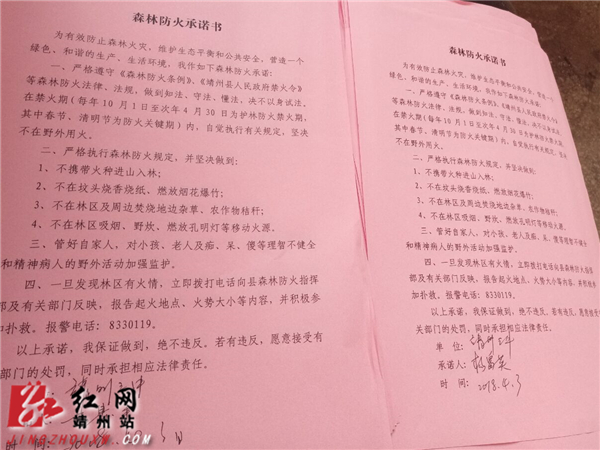 森林防火承诺书
为有效防止森林火灾、维护生态平衡和公共安全，营造一个
绿色、和谐的生产、生活环境，我作如下森林防火承诺：
一、严格遵守《森林防火条例》、《靖州县人民政府禁火令》
等森林防火法律、法规，做到知法、守法、懂法，决不以身试法，
在禁火期（每年10月1日至次年4月30日为护林防火禁火期，
其中春节、清明节为防火关键期）内，自觉执行有关规定，坚决
不在野外用火。
二、严格执行森林防火规定，并坚决做到：
1、不携带火种进山入林；
2、不在坟头烧香烧纸、燃放烟花爆竹；
3、不在林区及周边焚烧地边杂草、农作物秸秆；
4、不在林区吸烟、野炊、燃放孔明灯等移动火源。
三、管好自家人，对小孩、老人及痴、呆、傻等理智不健全
和精神病人的野外活动加强监护。
四、一旦发现林区有火情，立即拨打电话向县森林防火指挥
部及有关部门反映，报告起火地点、火势大小等内容，并积极参
加扑救。报警电话：8330119。
以上承诺，我保证做到，绝不违反。若有违反，愿意接受有
部门的处罚，同时承担相应法律责任。
时间：
森林防火承诺书
为有效防止森林火灾、维护生态平衡和公共安全，营造一个
绿色、和谐的生产、生活环境，我作如下森林防火承诺：
一、严格遵守《森林防火条例》、《靖州县人民政府禁火令》
等森林防火法律、法规，做到知法、守法、懂法，决不以身试法，
在禁火期（每年10月1日至次年4月30日为护林防火禁火期，
其中春节、清明节为防火关键期）内，自觉执行有关规定，坚决
不在野外用火。
二、严格执行森林防火规定，并坚决做到：
1、不携带火种进山入林；
2、不在坟头烧香烧纸、燃放烟花爆竹；
3、不在林区及周边焚烧地边杂草、农作物秸秆；
4、不在林区吸烟、野炊、燃放孔明灯等移动火源。
三、管好自家人，对小孩、老人及痴、呆、傻等理智不健全
和精神病人的野外活动加强监护。
四、一旦发现林区有火情，立即拨打电话向县森林防火指挥
部及有关部门反映，报告起火地点、火势大小等内容，并积极参
加扑救。报警电话：8330119。
以上承诺，我保证做到，绝不违反。若有违反，愿意接受有
关部门的处罚，同时承担相应法律责任。
单位：靖州
承诺人：
时间：2018.4.3
红网
靖州站
JINGZHOUXW.COM